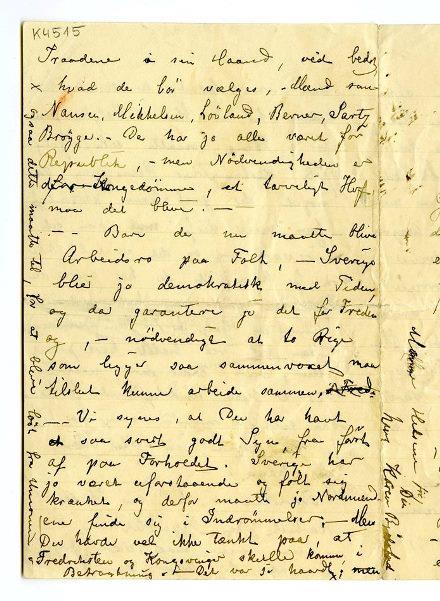 K4515
Traadene i sin Haand, véd bedst
hvad de bör vælges, - Mænd som
Nansen, Mikkelsen, Lövland, Berner, Sars,
Brögge. - De har jo alle været for
Republik, - men Nödvendigheden er
der - Kongedömme, et tarveligt Hof
maa det blive. -
- - Bare de nu maatte blive
Arbeidsro paa Folk, - Sverige
blir jo demokratisk med Tiden,
og da garanterer jo det for Freden
og, - nödvendigt at to Riger
som ligger saa sammenvoxet maa
tilslut kunne arbeide sammen,
- - Vi synes, at Du har havt
et saa svært godt Syn fra först
af paa Forholdet. Sverige har
jo været uforstaaende og fölt sig
krænket, og derfor maatte jo Nordmænd
ene finde sig i Indrömmelser, - Men
Du havde vel ikke tænkt paa, at
Fredriksten og Kongsvinger skulle komme i
Betragtning. - Det var jo haardt, men
x ogsaa dette maatte til, for at blive löst fra Unionen
Din
Hans Karen